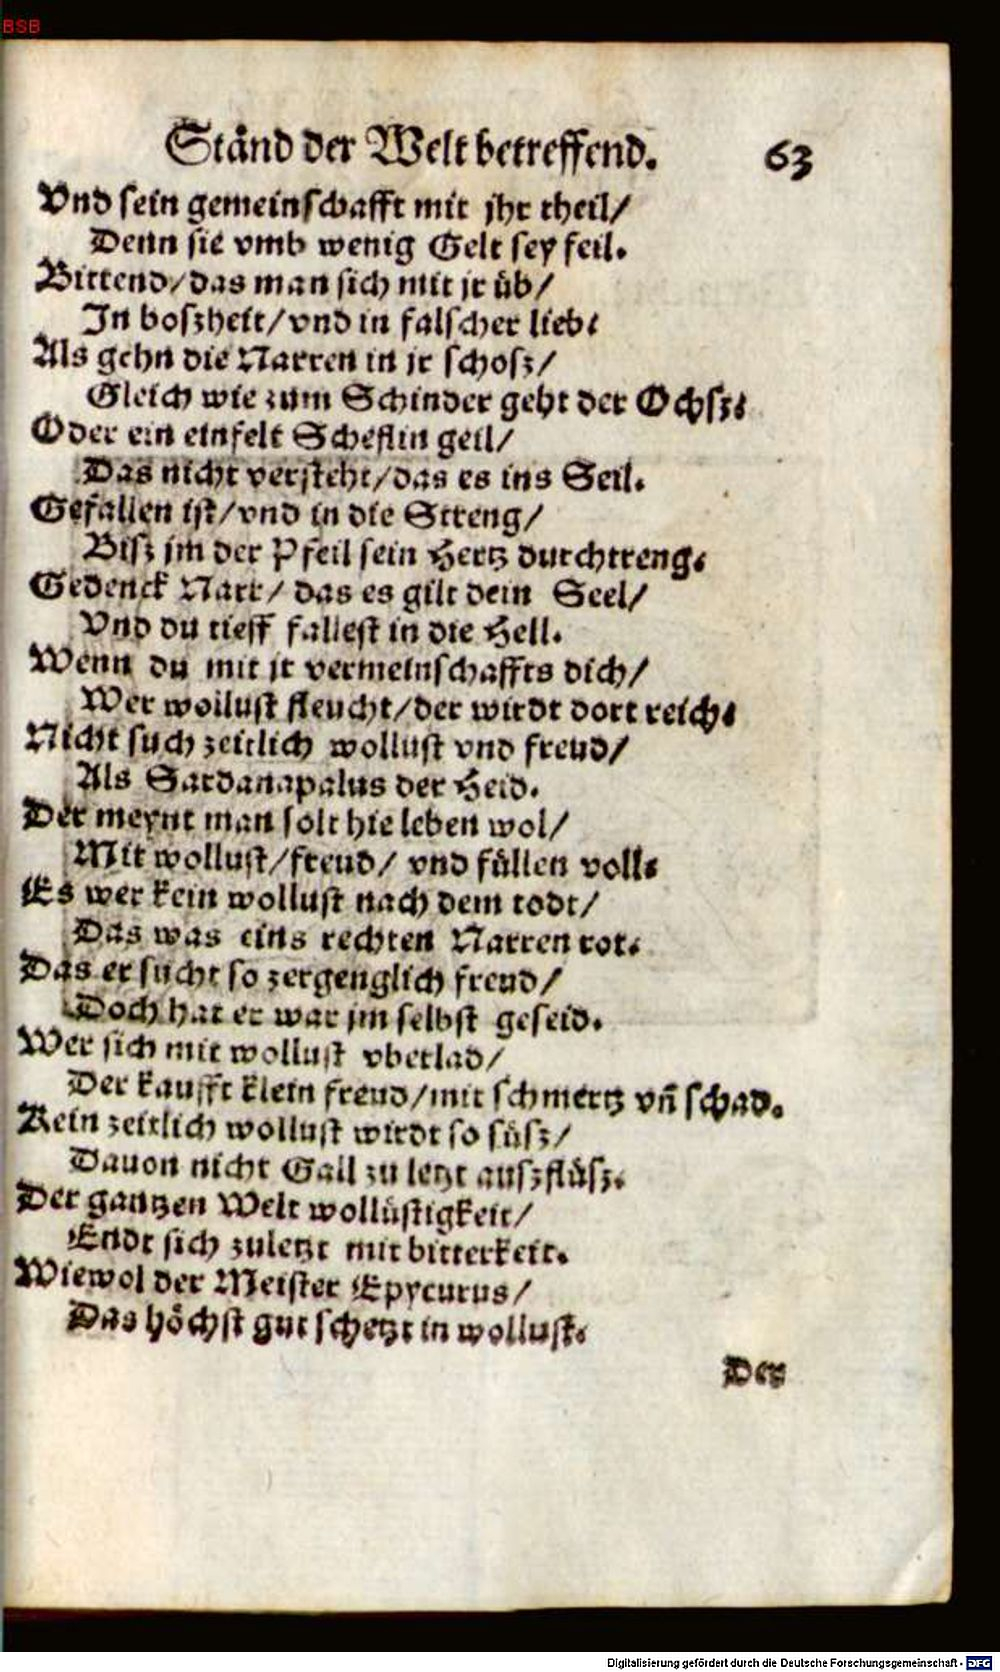 BSB
Ständ der Welt betreffend. 63
Vnd sein gemeinschafft mit jhr theil/
Denn sie vmb wenig Gelt sey feil.
Bittend/das man sich mit jr üb/
In boszheit/vnd in falscher lieb.
Als gehn die Narren in jr schosz/
Gleich wie zum Schinder geht der Ochsz.
Oder ein einfelt Scheflin geil/
Das nicht versteht/das es ins Seil.
Gefallen ist/vnd in die Streng/
Bisz jm der Pfeil sein Hertz durchtreng.
Gedenck Narr/ das es gilt dein Seel/
Vnd du tieff fallest in die Hell.
Wenn du mit jr vermeinschaffts dich/
Wer wollust fleucht/der wirdt dort reich.
Nicht such zeitlich wollust vnd freud/
Als Sardanapalus der Heid.
Der meynt man solt hie leben wol/
Mit wollust/freud/ vnd füllen voll.
Es wer kein wollust nach dem todt/
Das was eins rechten Narren rot.
Das er sucht so zergenglich freud/
Doch hat er war jm selbst geseid.
Wer sich mit wollust vberlad/
Der kaufft klein freud/mit schmertz vñ schad.
Kein zeitlich wollust wirdt so süsz/
Dauon nicht Gall zu letzt auszflüsz.
Der gantzen Welt wollüstigkeit/
Endt sich zuletzt mit bitterkeit.
Wiewol der Meister Epycurus/
Das höchst gut schetzt in wollust.
Der
Digitalisierung gefördert durch die Deutsche Forschungsgemeinschaft - DFG